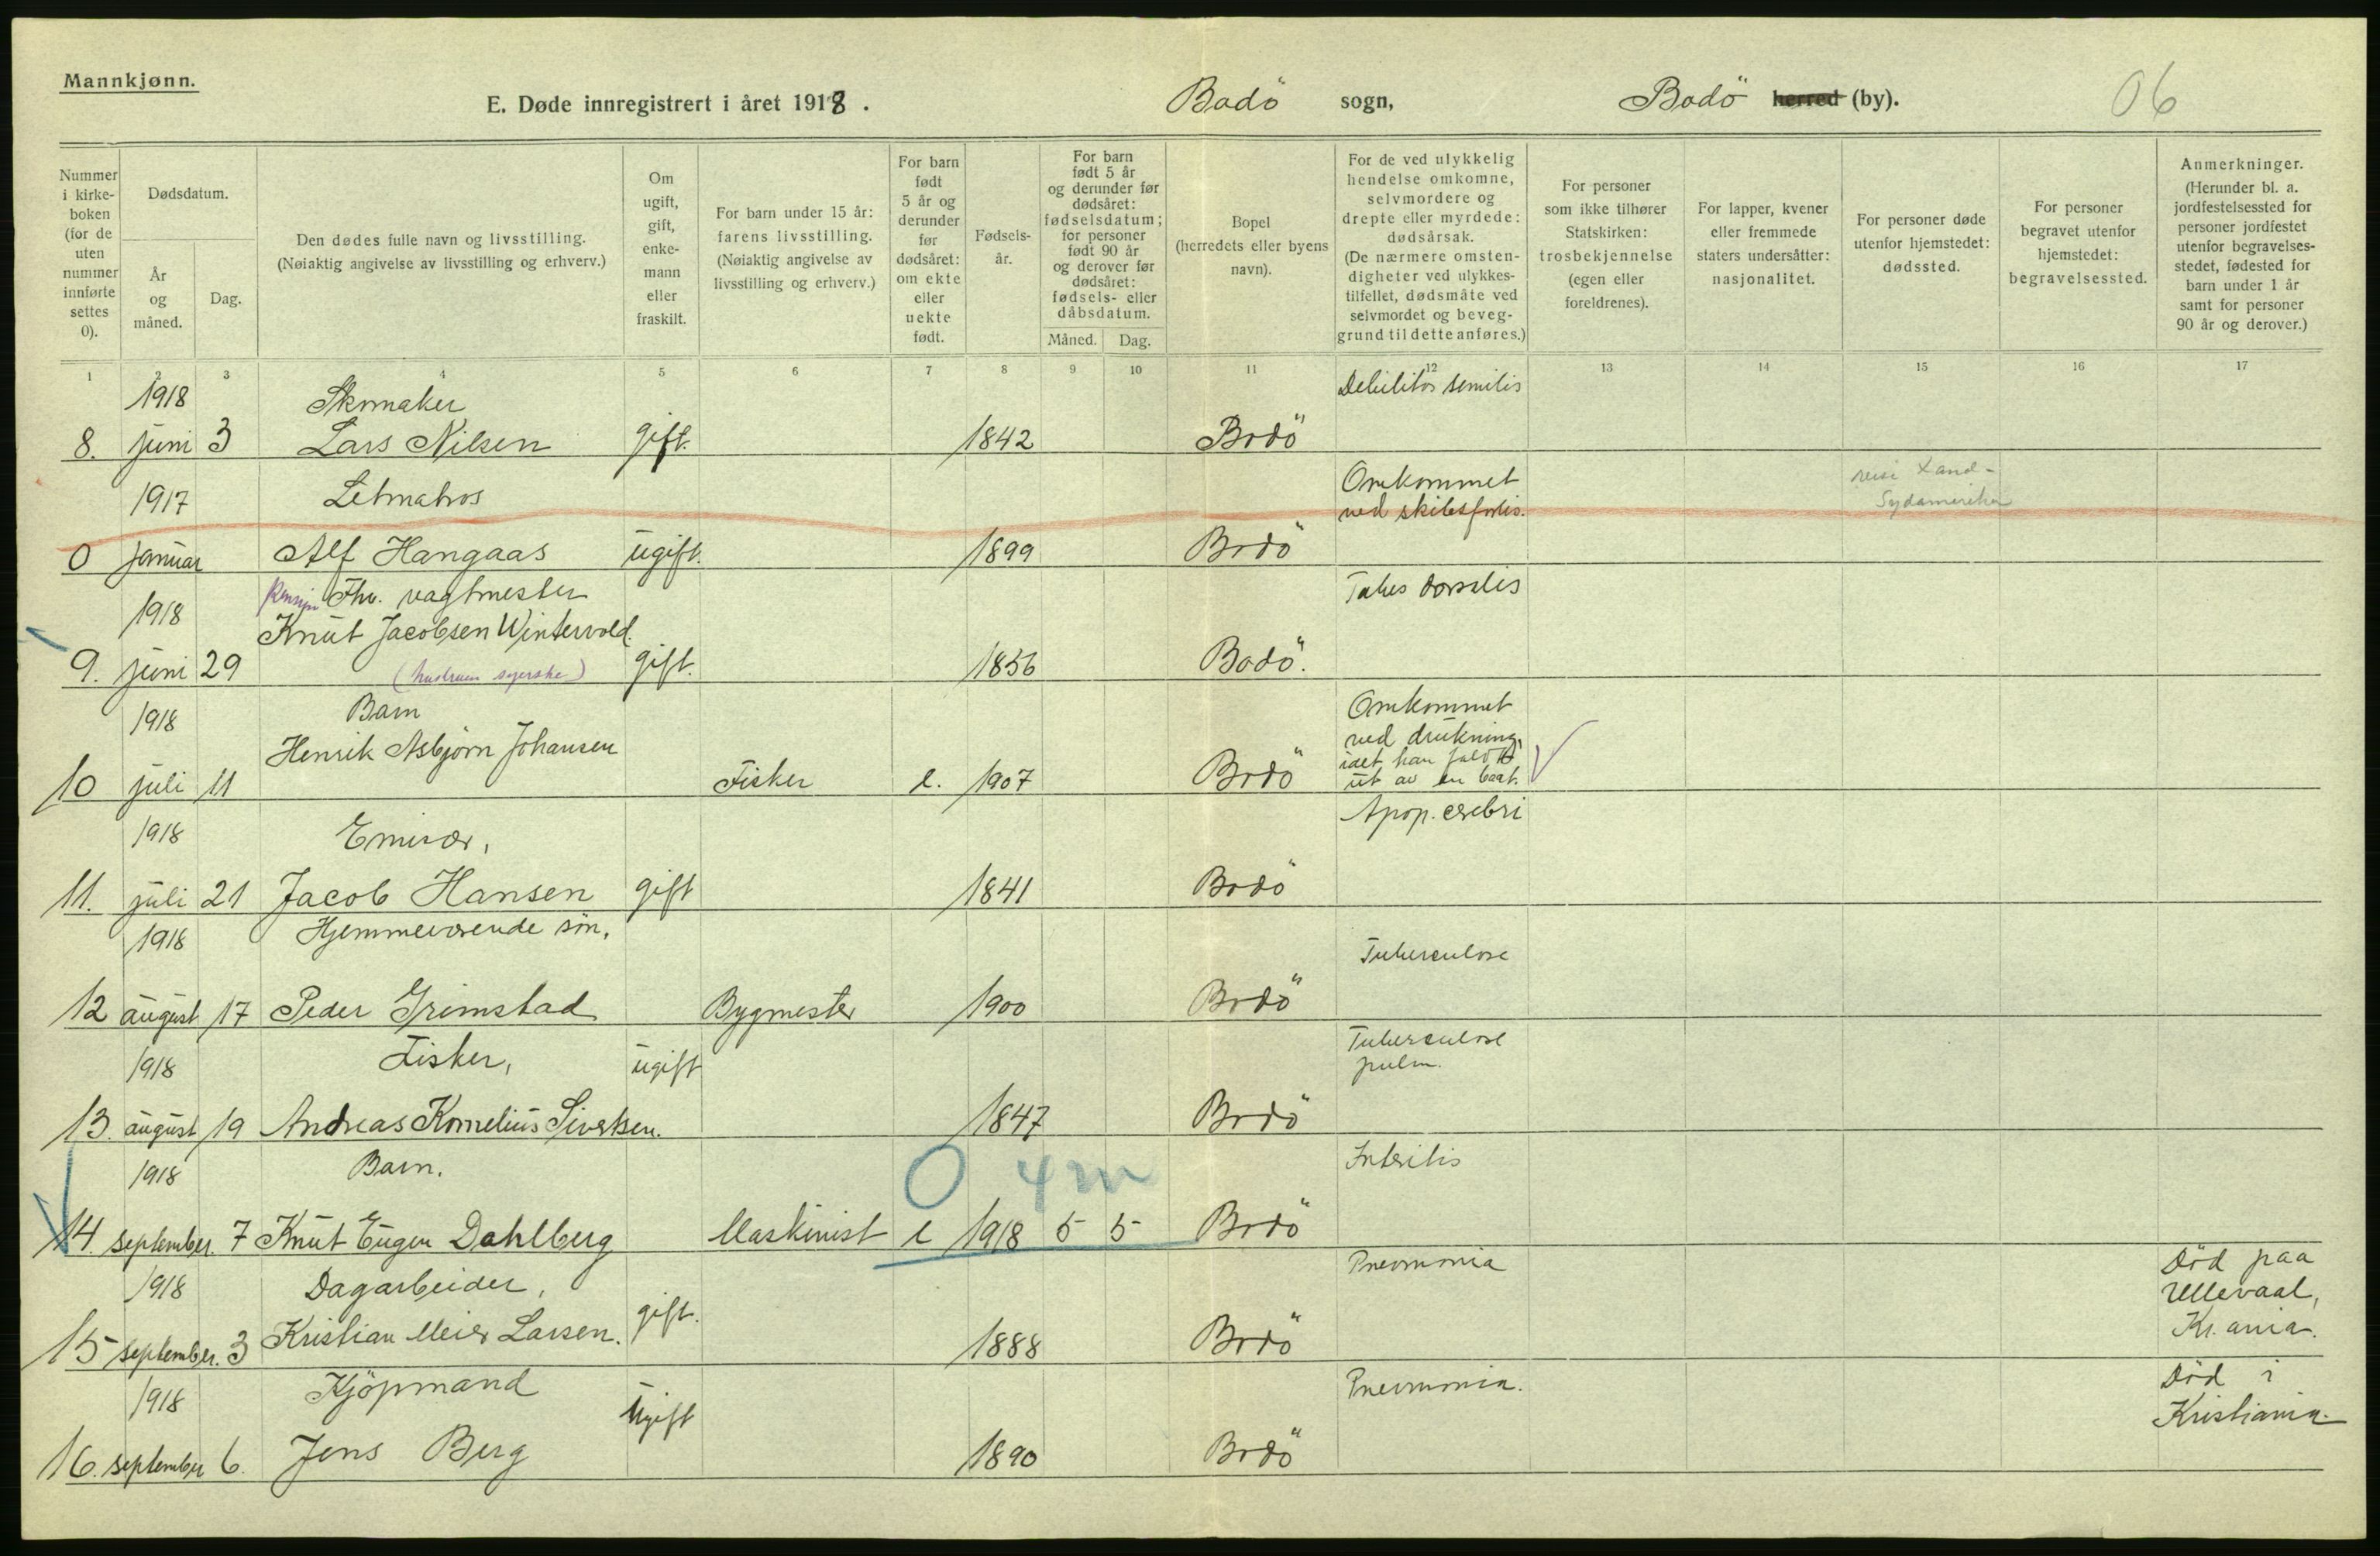 Mannkjønn.
E. Døde innregistrert i året 1918. Bodö sogn, Bodö herred (by). 06
Nummer i kirke- boken (for de uten nummer innførte settes 0).
Dødsdatum.
År og måned.
Dag.
Den dødes fulle navn og livsstilling.
(Nøiaktig angivelse av livsstilling og erhverv.)
Om ugift, gift, enke- mann eller fraskilt.
For barn under 15 år: farens livsstilling.
(Nøiaktig angivelse av livsstilling og erhverv.)
For barn født 5 år og derunder før dødsåret: om ekte eller uekte født.
Fødsels- år.
For barn født 5 år og derunder før dødsåret: fødselsdatum; for personer født 90 år og derover før dødsåret: fødsels- eller dåbsdatum.
Måned. Dag.
Bopel (herredets eller byens navn).
For de ved ulykkelig hendelse omkomne, selvmordere og drepte eller myrdede: dødsårsak.
(De nærmere omsten- digheter ved ulykkes- tilfellet, dødsmåte ved selvmordet og beveg- grund til dette anføres.)
For personer som ikke tilhører Statskirken: trosbekjennelse (egen eller foreldrenes).
For lapper, kvener eller fremmede staters undersåtter: nasjonalitet.
For personer døde utenfor hjemstedet: dødssted.
For personer begravet utenfor hjemstedet: begravelsessted.
Anmerkninger.
(Herunder bl. a. jordfestelsessted for personer jordfestet utenfor begravelses- stedet, fødested for barn under 1 år samt for personer 90 år og derover.)
1 2 3 4 5 6 7 8 9 10 11 12 13 14 15 16 17
1918 Skomaker Debilitas senilis
8. juni 3 Lars Nilsen gift. 1842 Bodö
1917 Letmatros Omkommet ved skibsforlis. reise Sydamerika
0 januar Alf Hangaas ugift. 1899 Bodö
1918 Fhv. vagtmester Tabes dorsalis
Knut Jacobsen Wintervold.
9. juni 29 (hustruen syerske) gift. 1856 Bodö.
1918 Barn Omkommet
Henrik Asbjörn Johansen ved drukning, idet han faldt
10 juli 11 Fisker e. 1907 Bodö ut av en baat.
1918 Emisær, Apop. cerebri
11. juli 21 Jacob Hansen gift 1841 Bodö
1918 Hjemmeværende sön, Tuberculose
12 august 17 Peder Grimstad Bygmester 1900 Bodö
1918 Fisker, ugift Tuberculose pulm.
13. august 19 Andreas Kornelius Sivertsen. 1847 Bodö
1918 Barn. 0 4 m Enteritis
14. september. 7 Knut Eugen Dahlberg Maskinist e 1918 5 5 Bodö
1918 Dagarbeider, Pneumonia Död paa Ullevaal, Kr.ania.
15 september. 3 Kristian Meier Larsen. gift. 1888 Bodö
1918 Kjöpmand Pneumonia. Död i Kristiania.
16. september 6. Jens Berg Ugift 1890 Bodö